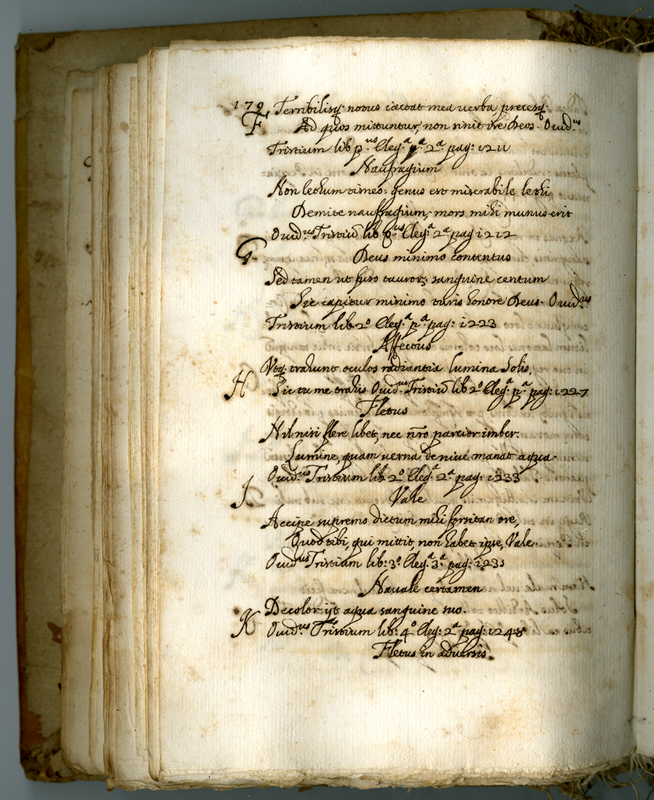 179 Terribilisq. notus iactat mea verba precesq.
F Ad quos mittuntur, non sinit ire Deos. Ouid.us
Tristium lib p.us Eleg.a 2.a pag: 1211
Naufragium
Non lethum timeo: genus est miserabile lethi
Demite naufragium, mors mihi munus erit
Ouid.us Tristiu lib p.us Eleg.a 2.a pag 1212
G Deus minimo contentus
Sed tamen ut fuso tauror, sanguine centum
Sic capitur minimo turis honore Deus. Ouid.us
Tristium lib 2.o Eleg.a p.a pag: 1223
Affectus
Vtq. trahunt oculos radiantia lumina Solis,
H Sic tu me trahis Ouid.us Tristiu lib 2.o Eleg.a p.a pag: 1227
Fletus
Nil nisi flere libet, nec nro parcior imber
Lumine, quam verna de niue manat aqua.
Ouid.us Tristium lib 2.o Eleg.a 2.a pag: 1233
I Vale
Accipe supremo dictum mihi forsitan ore,
Quod tibi, qui mittit, non habet ipse, Vale.
Ouid.us Tristium lib: 3.o Eleg.a 3.a pag: 1235
Nauale certamen
Decolor ijt aqua sanguine suo.
K Ouid.us Tristium lib: 4.o Eleg: 2.a pag: 1248
Fletus in aduersis.